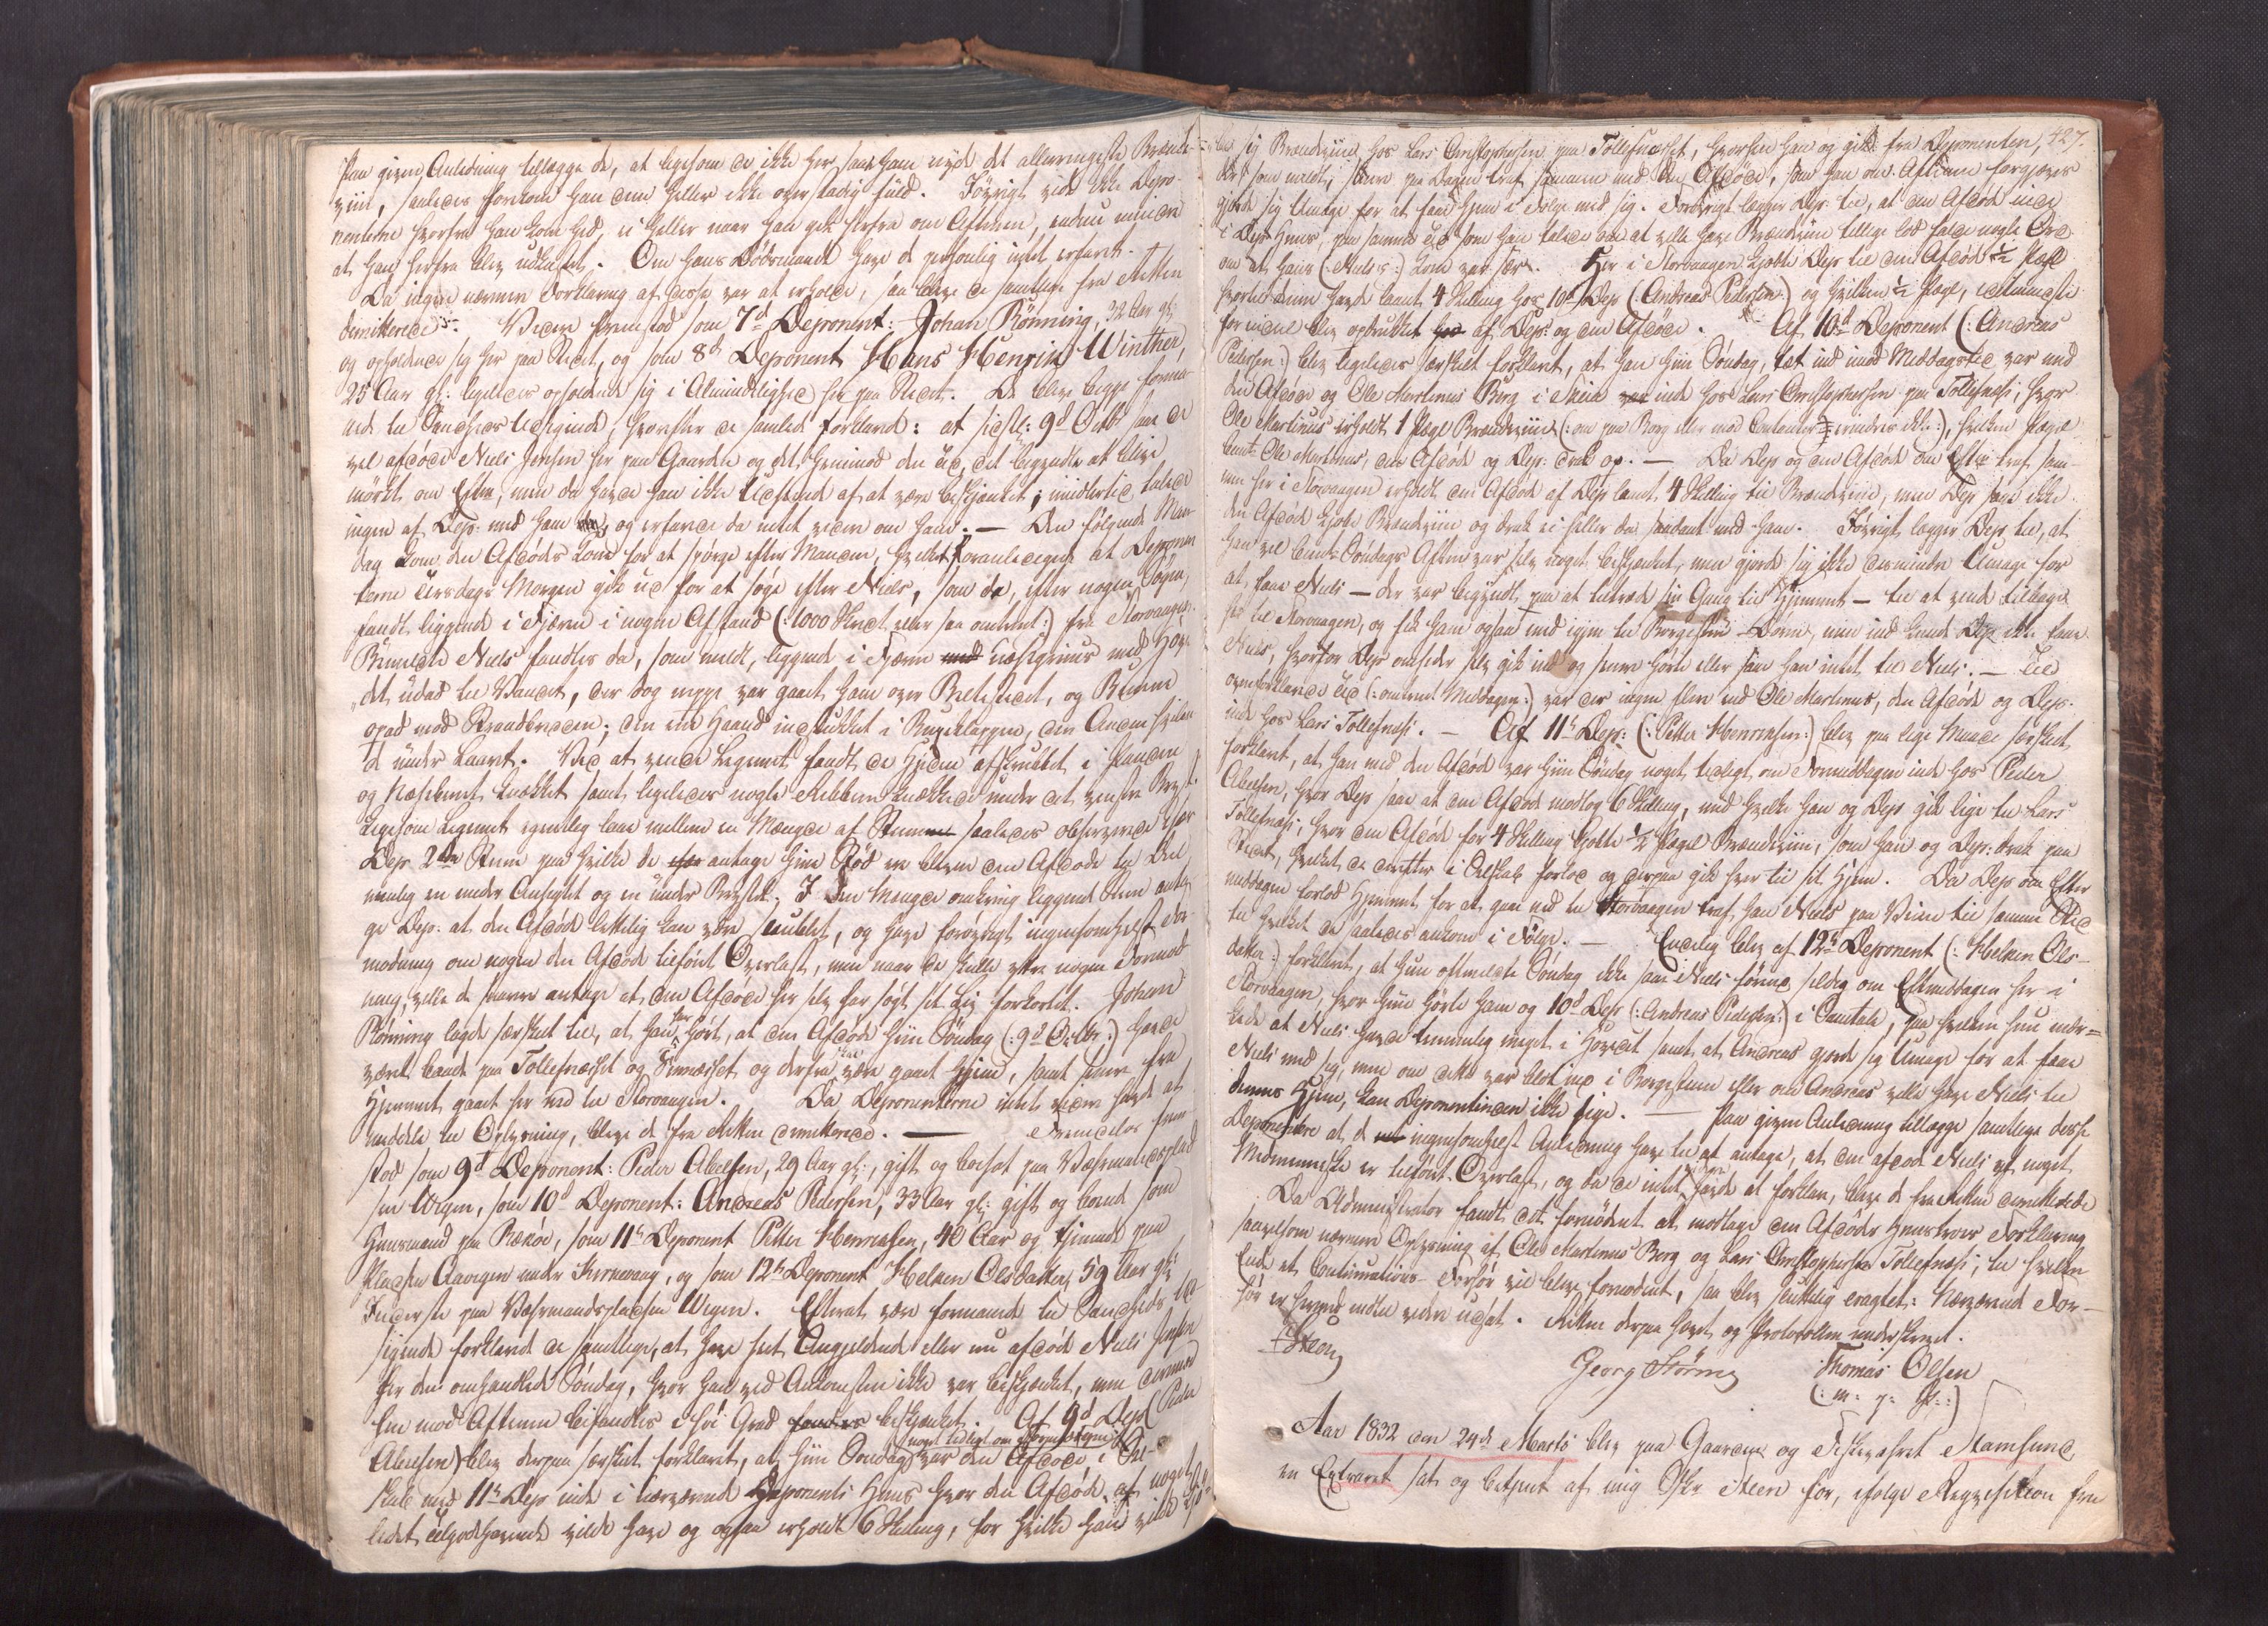 Paa given Anledning tillægge de, at ligesom de ikke her saae ham nyde det allerringeste Brænde-
viin, saaledes forekom han dem heller ikke overstadig fuld. Iøvrigt vide ikke Depo-
nenterne hvorfra han kom hid, ei heller naar han gik herfra om Aftenen, endnu mindre
at han herfra blev udkastet. Om hans Dødsmaade have de personlig intet erfaret.
Da ingen nærmere Forklaring af disse var at erholde, saa bleve de samtlige fra Retten
demitterede. Videre fremstod som 7d Deponent: Johan Rønning, 32 Aar gl:
og opholdende sig her paa Stedet, og som 8d Deponent Hans Henrik Winther,
25 Aar gl: ligeledes opholdende sig i Almindelighed her paa Stedet. De bleve begge forma-
nede til Sandheds Udsigende, hvorefter de samlet forklarede: at sidstl: 9d Octbr saae de
vel afdøde Niels Jensen her paa Gaarden og det henimod den Tid, det begyndte at blive
mørkt om Eftm, men da havde han ikke Udseende af at være beskjænket; imidlertid talede
ingen af Dep: med ham og erfarede da intet videre om ham. — Den følgende Man-
dag kom den Afdødes Kone for at spørge efter Manden, hvilket foranledigede at Deponen-
terne Tirsdags Morgen gik ud for at søge efter Niels, som da, efter nogen Søgen,
fandtes liggende i Fjæren i nogen Afstand (: 1000 Skridt eller saa omtrent :) fra Storvaagen.
Bemeldte Niels fandtes da, som meldt, liggende i Fjæren næsegruus med Hove-
det udad til Vandet, der dog neppe var gaaet ham over Beltestedet, og Benene
opad mod Strandbredden; den ene Haand indstukket i Buxeklappen, den Anden hvilen-
de under Laaret. Ved at vende Legemet fandt de Huden afskrubbet i Panden
og Næsebenet knækket samt ligeledes nogle Ribben knækkede under det venstre Bryst.
Ligesom Legemet egentlig laae mellem en Mængde af Stene saaledes observerede især
Dep. 2de Stene paa hvilke de antage hine Stød ere blevne den Afdøde til Deel
nemlig en under Ansigtet og en under Brystet. I den Mængde omkring liggende Stene anta-
ge Dep: at den Afdøde lettelig kan være snublet, og have forøvrigt ingensomhelst For-
modning om nogen den Afdøde tilføiet Overlast, men naar de skulle yttre nogen Formod-
ning, ville de snarere antage at den Afdøde her selv har søgt sit Liv forkortet. Johan
Rønning lagde særskilt til, at han har hørt, at den Afdøde hiin Søndag (: 9d Octbr :) havde
været baade paa Tollefnæsset og Finnæsset og derfra skal være gaaet hjem, samt senere fra
Hjemmet gaaet her ned til Storvaagen. Da Deponenterne intet videre havde at
meddele til Oplysning, bleve de fra Retten demitterede. — Fremdeles frem-
stod som 9d Deponent: Peder Abelsen, 29 Aar gl:, gift og boesat paa Værmandsplad-
sen Uvegen, som 10d Deponent: Andreas Pedersen, 33 Aar gl: gift og boende som
Huusmand paa Rækøe, som 11te Deponent Petter Henriksen, 40 Aar og tjenende paa
Pladsen Aavegen under Kirkevaag, og som 12te Deponent Helken Olsdatter, 59 Aar gl:
Inderste paa Værmandspladsen Uvegen. Efterat være formanede til Sandheds Ud-
sigende forklarede de samtlige, at have seet Angjeldende eller nu afdøde Niels Jensen
her den omhandlede Søndag, hvor han ved Ankomsten ikke var beskjænket, men derimod
hen mod Aftenen befandtes i høi Grad beskjænket. Af 9d Dep (Peder
noget tidligt om Formiddagen
Abelsen) blev derpaa særskilt forklaret, at hiin Søndag var den Afdøde i Sel-
skab med 11te Dep inde i nærværende Deponents Huus hvor den Afdøde af noget
lidet Tilgodehavende vilde have og ogsaa erholdt 6 Skilling, for hvilke han vilde kjø-
427.
be sig Brændeviin hos Lars Christophersen paa Tollefnæsset, hvorhen han og gik fra Deponenten,
der som meldt, senere paa Dagen traf sammen med den Afdøde, som han om Aftenen forgjæves
gjorde sig Umage for at faae hjem i Følge med sig. Forøvrigt lægger Dep: til, at den Afdøde inde
i Deps Huus, paa samme Tid som han talede om at ville have Brændeviin tillige lod falde nogle Ord
om at hans (: Niels's :) Kone var sær. Her i Storvaagen kjøbte Dep til den Afdøde ½ Pægl
hvortil denne havde laant 4 Skilling hos 10d Dep (: Andreas Pedersen :) og hvilken ½ Pægl, idetmindste
for endeel blev opdrukket af Dep: og den Afdøde. Af 10d Deponent (: Andreas
Pedersen :) blev ligeledes særskilt forklaret, at han hiin Søndag, tæt ind imod Middagstid var med
den Afdøde og Ole Martinus Berg i Steine inde hos Lars Christophersen paa Tollefnæs, hvor
Ole Martinus erholdt 1 Pægl Brændeviin (: om paa Borg eller mod Contanter erindres ikke :), hvilken Pægl
bemte Ole Martinus, den Afdøde og Dep: drak op. — Da Dep og den Afdøde om Eftm traf sam-
men her i Storvaagen erholdt den Afdøde af Dep laant 4 Skilling til Brændeviin, men Dep saae ikke
den Afdøde kjøbe Brændeviin og drak ei heller da saadant med ham. Iøvrigt lægger Dep til, at
han vel bemte Søndags Aften var selv noget beskjænket, men gjorde sig ikke desmindre Umage for
at faae Niels — der var begyndt paa at tiltræde sin Gang til Hjemmet — til at vende tilbage
her til Storvaagen, og fik ham ogsaa med igjen til Borgestue-Døren, men ind kunde Dep ikke faae
Niels, hvorfor Dep omsider selv gik ind og senere hørte eller saae han intet til Niels. — Ved
ovenforklarede Tid (: omtrent Middagen :) var der ingen flere end Ole Martinus, den Afdøde og Dep:
inde hos Lars Tollefnæss. — Af 11te Dep: (: Petter Henriksen :) blev paa lige Maade særskilt
forklaret, at han med den Afdøde var hiin Søndag noget tidligt om Formiddagen inde hos Peder
Abelsen, hvor Dep saae at den Afdøde modtog 6 Skilling, med hvilke han og Dep gik lige til Lars
Tollefnæss, hvor den Afdøde for 4 Skilling kjøbte ½ Pægel Brændeviin, som han og Dep: drak paa
Stedet, hvilket de derefter i Selskab forlod og derpaa gik hver til sit Hjem. Da Dep om Efter-
middagen forlod Hjemmet for at gaae ned til Storvaagen traf han Niels paa Veien til samme Sted
til hvilket de saaledes ankom i Følge. — Endelig blev af 12te Deponent (: Helken Ols-
datter :) forklaret, at hun ofmeldte Søndag ikke saae Niels førend sildig om Eftermiddagen her i
Storvaagen, hvor hun hørte ham og 10d Dep (: Andreas Pedersen :) i Samtale, paa hvilken hun mær-
kede at Niels havde temmelig meget i Hovedet samt at Andreas gjorde sig Umage for at faae
Niels med sig, men om dette var blot ind i Borgestuen eller om Andreas vilde have Niels til
dennes Hjem, kan Deponentinden ikke sige. — Paa given Anledning tillægge samtlige disse
Deponentere at de ingensomhelst Anledning have til at antage, at den afdøde Niels af noget
Medmenneske er tilføiet Overlast, og da de intet videre havde at forklare, bleve de fra Retten demitterede
Da Administrator fandt det fornødent at modtage den Afdødes Huustroes Forklaring
saavelsom nærmere Oplysning af Ole Martinus Berg og Lars Christophersen Tollefnæss, til hvilken
Ende et Continuations-Forhør vil blive fornødent, saa blev sluttelig eragtet: Nærværende For-
hør er hermed indtil videre udsat. Retten derpaa hævet og Protocollen underskrevet.
Steen
Georg Störmer
Thomas Olsen
(: m: p: P: :)
Aar 1832 den 24de Marts blev paa Gaarden og Fiskeværet Stamsund
en Extraret sat og betjent af mig Skr Steen for, ifølge Reqvisition fra